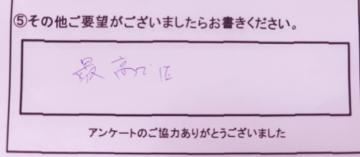 ⑤その他ご要望がございましたらお書きください。
最高
アンケートのご協力ありがとうございました